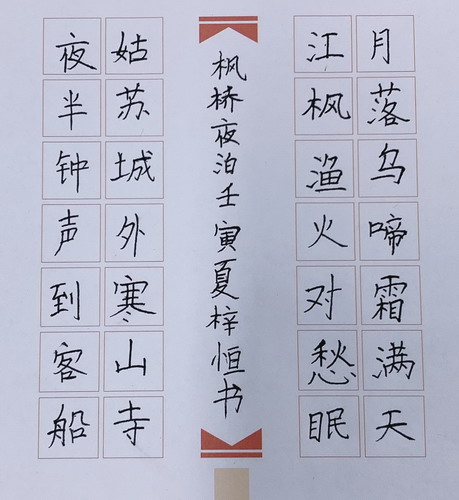 月落乌啼霜满天
江枫渔火对愁眠
枫桥夜泊壬寅夏梓恒书
姑苏城外寒山寺
夜半钟声到客船